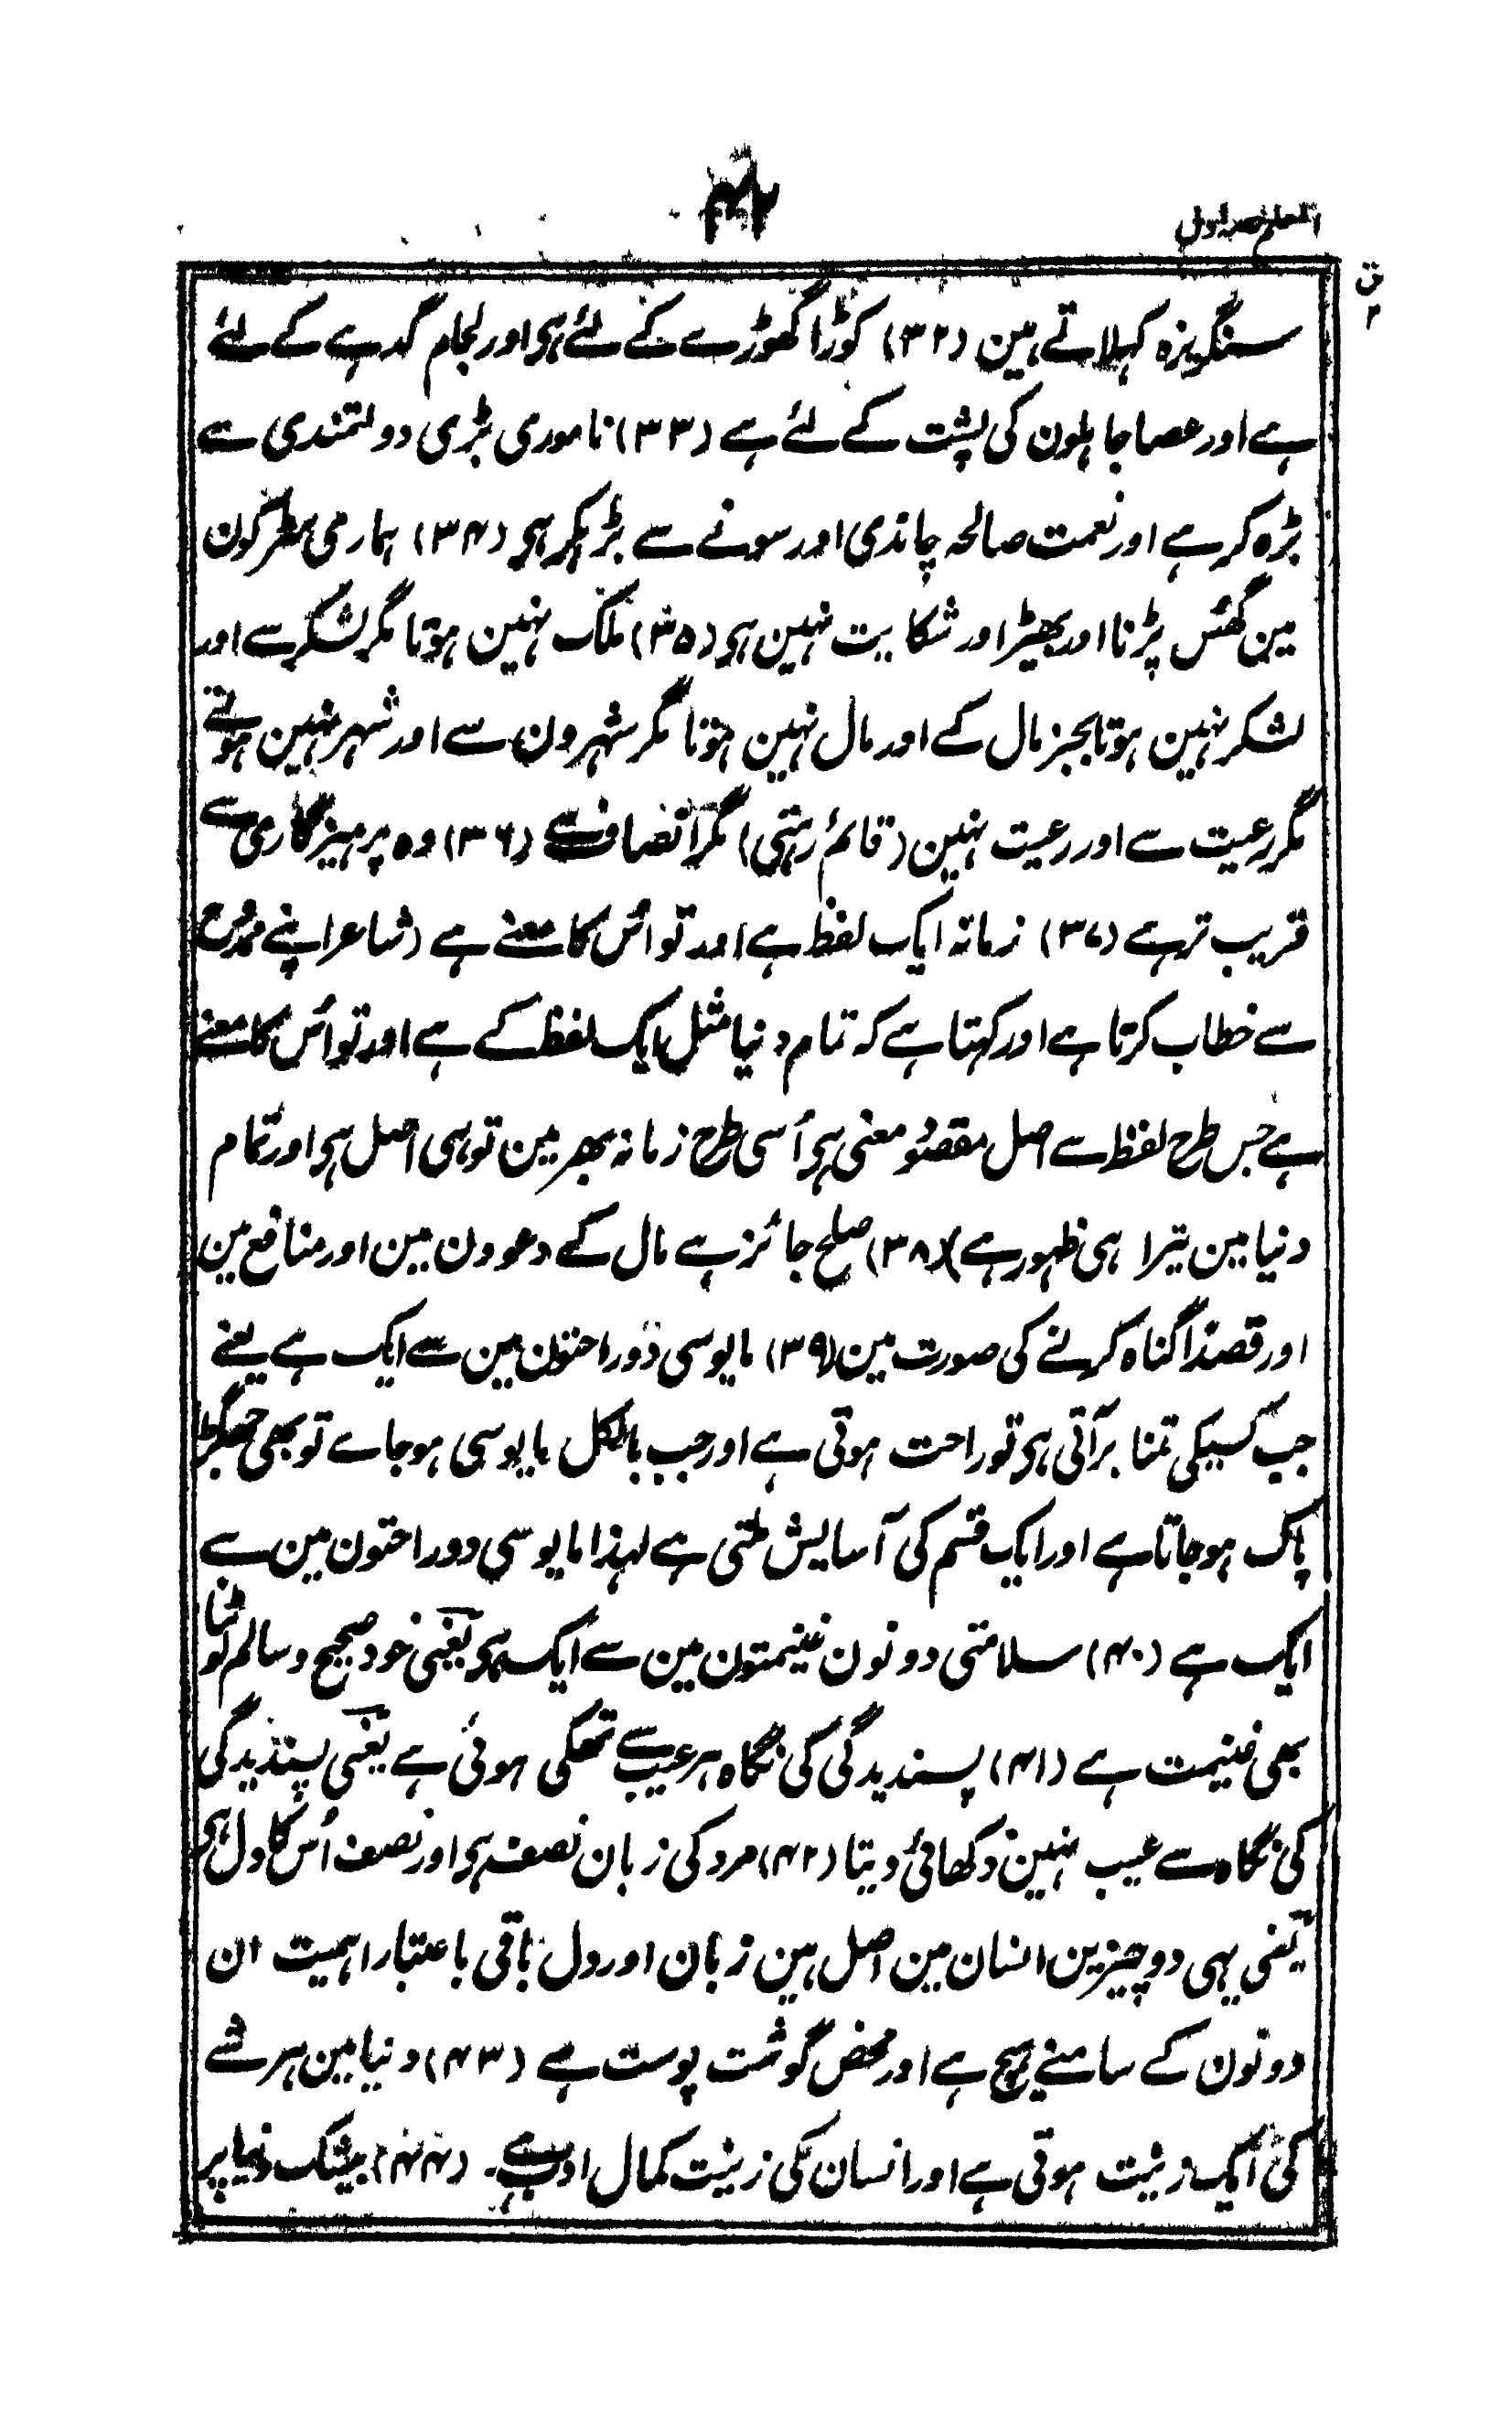 المعلم حصہ اول
سنگریزہ کہلاتے ہین (۳۲) کوڑا گھوڑے کے لئے ہی اور لجام گدہے کے لئے
ہے اور عصا جاہلون کی پشت کے لئے ہے (۳۳) ناموری بڑی دولتمندی سے
بڑہ کر ہے اور نعمت صالحہ چاندی اور سونے سے بڑہکر ہی (۳۴) ہماری سڑکون
مین گھس پڑنا اور بھیڑ اور شکایت نہین ہی (۳۵) ملک نہین ہوتا مگر لشکر سے اور
لشکر نہین ہوتا بجز مال کے اور مال نہین ہوتا مگر شہرون سے اور شہر نہین ہوتے
مگر رعیت سے اور رعیت نہین (قائم رہتی) مگر انصاف سے (۳۶) وہ پرہیزگاری سے
قریب تر ہے (۳۷) زمانہ ایک لفظ ہے اور تو اُس کا معنے ہے (شاعر اپنے ممدوح
سے خطاب کرتا ہے اور کہتا ہے کہ تمام دنیا مثل ایک لفظ کے ہے اور تو اُس کا معنے
ہے جس طرح لفظ سے اصل مقصود معنی ہی اُسی طرح زمانہ بھر مین تو ہی اصل ہی اور تمام
دنیا مین تیرا ہی ظہور ہے) (۳۸) صلح جائز ہے مال کے دعوون مین اور منافع مین
اور قصداً گناہ کرنے کی صورت مین (۳۹) مایوسی دو راحتون مین سے ایک ہے یعنے
جب کسیکی تمنا برآتی ہی تو راحت ہوتی ہے اور جب بالکل مایوسی ہوجاے تو بھی جھگڑا
پاک ہوجاتا ہے اور ایک قسم کی آسایش ملتی ہے لہذا مایوسی دو راحتون مین سے
ایک ہے (۴۰) سلامتی دونون غنیمتون مین سے ایک ہی یعنی خود صحیح و سالم لوٹنا
بھی غنیمت ہے (۴۱) پسندیدگی کی نگاہ ہر عیب سے تھکی ہوئی ہے یعنی پسندیدگی
کی نگاہ سے عیب نہین دکھائی دیتا (۴۲) مرد کی زبان نصف ہی اور نصف اُس کا دل ہی
یعنی یہی دو چیزین انسان مین اصل ہین زبان اور دل باقی باعتبار اہمیت ان
دونون کے سامنے ہیچ ہے اور محض گوشت پوست ہے (۴۳) دنیا مین ہر شے
کی ایک زینت ہوتی ہے اور انسان کی زینت کمال ادب ہے۔ (۴۴) بیشک دنیا پر